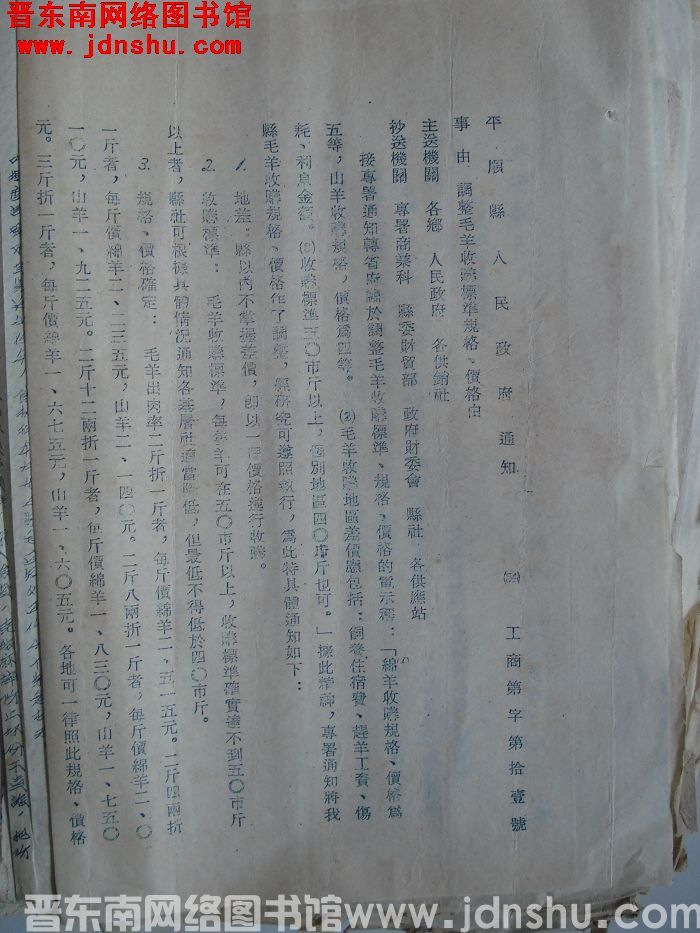 晋东南网络图书馆
www.jdnshu.com
平順縣人民政府通知
工商第字第拾壹號
事由 調整毛羊收購標準規格、價格由
主送機關 各鄉 人民政府 各供銷社
抄送機關 專署商業科 縣委財貿部 政府財委會 縣社 各供應站
接專署通知轉省府關於調整毛羊收購標準、規格、價格的電示稱：「綿羊收購規格、價格爲
五等，山羊收購規格，價格爲四等。⑵毛羊收購地區差價應包括：飼養住宿費、趕羊工資、傷
耗、利息金額。⑶收購標準五〇市斤以上，個別地區四〇市斤也可。」據此精神，專署通知將我
縣毛羊收購規格、價格作了調整，經研究可遵照執行，爲此特具體通知如下：
1. 地差：縣以內不掌握差價，卽以一個價格進行收購。
2. 收購標準： 毛羊收購標準，每隻羊可在五〇市斤以上，收購標準確實達不到五〇市斤
以上者，縣社可根據具體情況通知各基層社適當降低，但最低不得低於四〇市斤。
3. 規格、價格確定： 毛羊出肉率二斤折一斤者，每斤價綿羊二、五一五元。二斤四兩折
一斤者，每斤價綿羊二、二三五元，山羊二、一四〇元。二斤八兩折一斤者，每斤價綿羊二、〇
一〇元，山羊一、九二五元。二斤十二兩折一斤者，每斤價綿羊一、八三〇元，山羊一、七五〇
元。三斤折一斤者，每斤價綿羊一、六七五元，山羊一、六〇五元。各地可一律照此規格、價格
晋东南网络图书馆 www.jdnshu.com